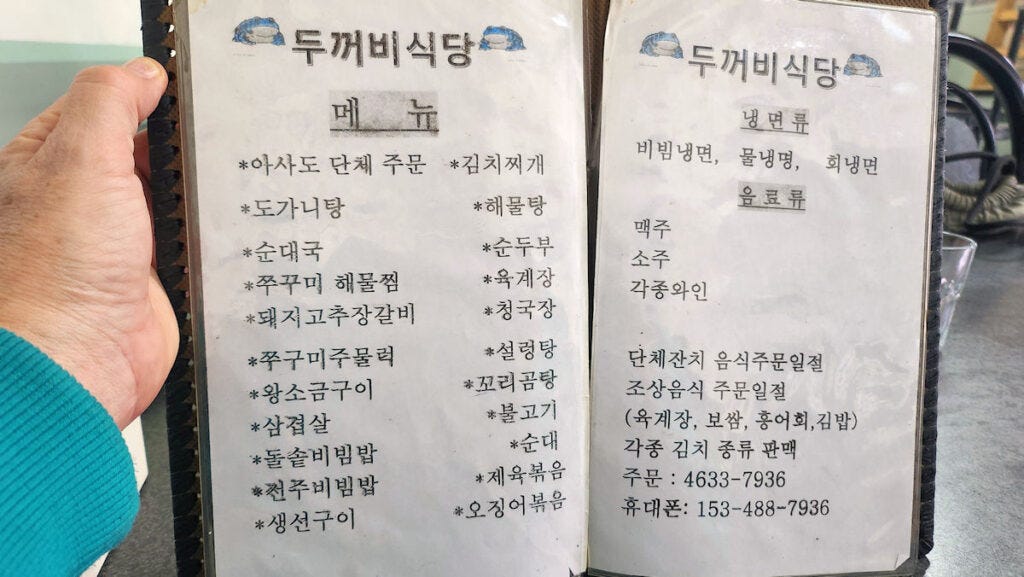 두꺼비식당
메 뉴
*아사도 단체 주문 *김치찌개
*도가니탕 *해물탕
*순대국 *순두부
*쭈꾸미 해물찜 *육계장
*돼지고추장갈비 *청국장
*쭈구미주물럭 *설렁탕
*왕소금구이 *꼬리곰탕
*삼겹살 *불고기
*돌솥비빔밥 *순대
*전주비빔밥 *제육볶음
*생선구이 *오징어볶음
두꺼비식당
냉면류
비빔냉면, 물냉명, 회냉면
음료류
맥주
소주
각종와인
단체잔치 음식주문일절
조상음식 주문일절
(육계장, 보쌈, 홍어회,김밥)
각종 김치 종류 판맥
주문 : 4633-7936
휴대폰: 153-488-7936